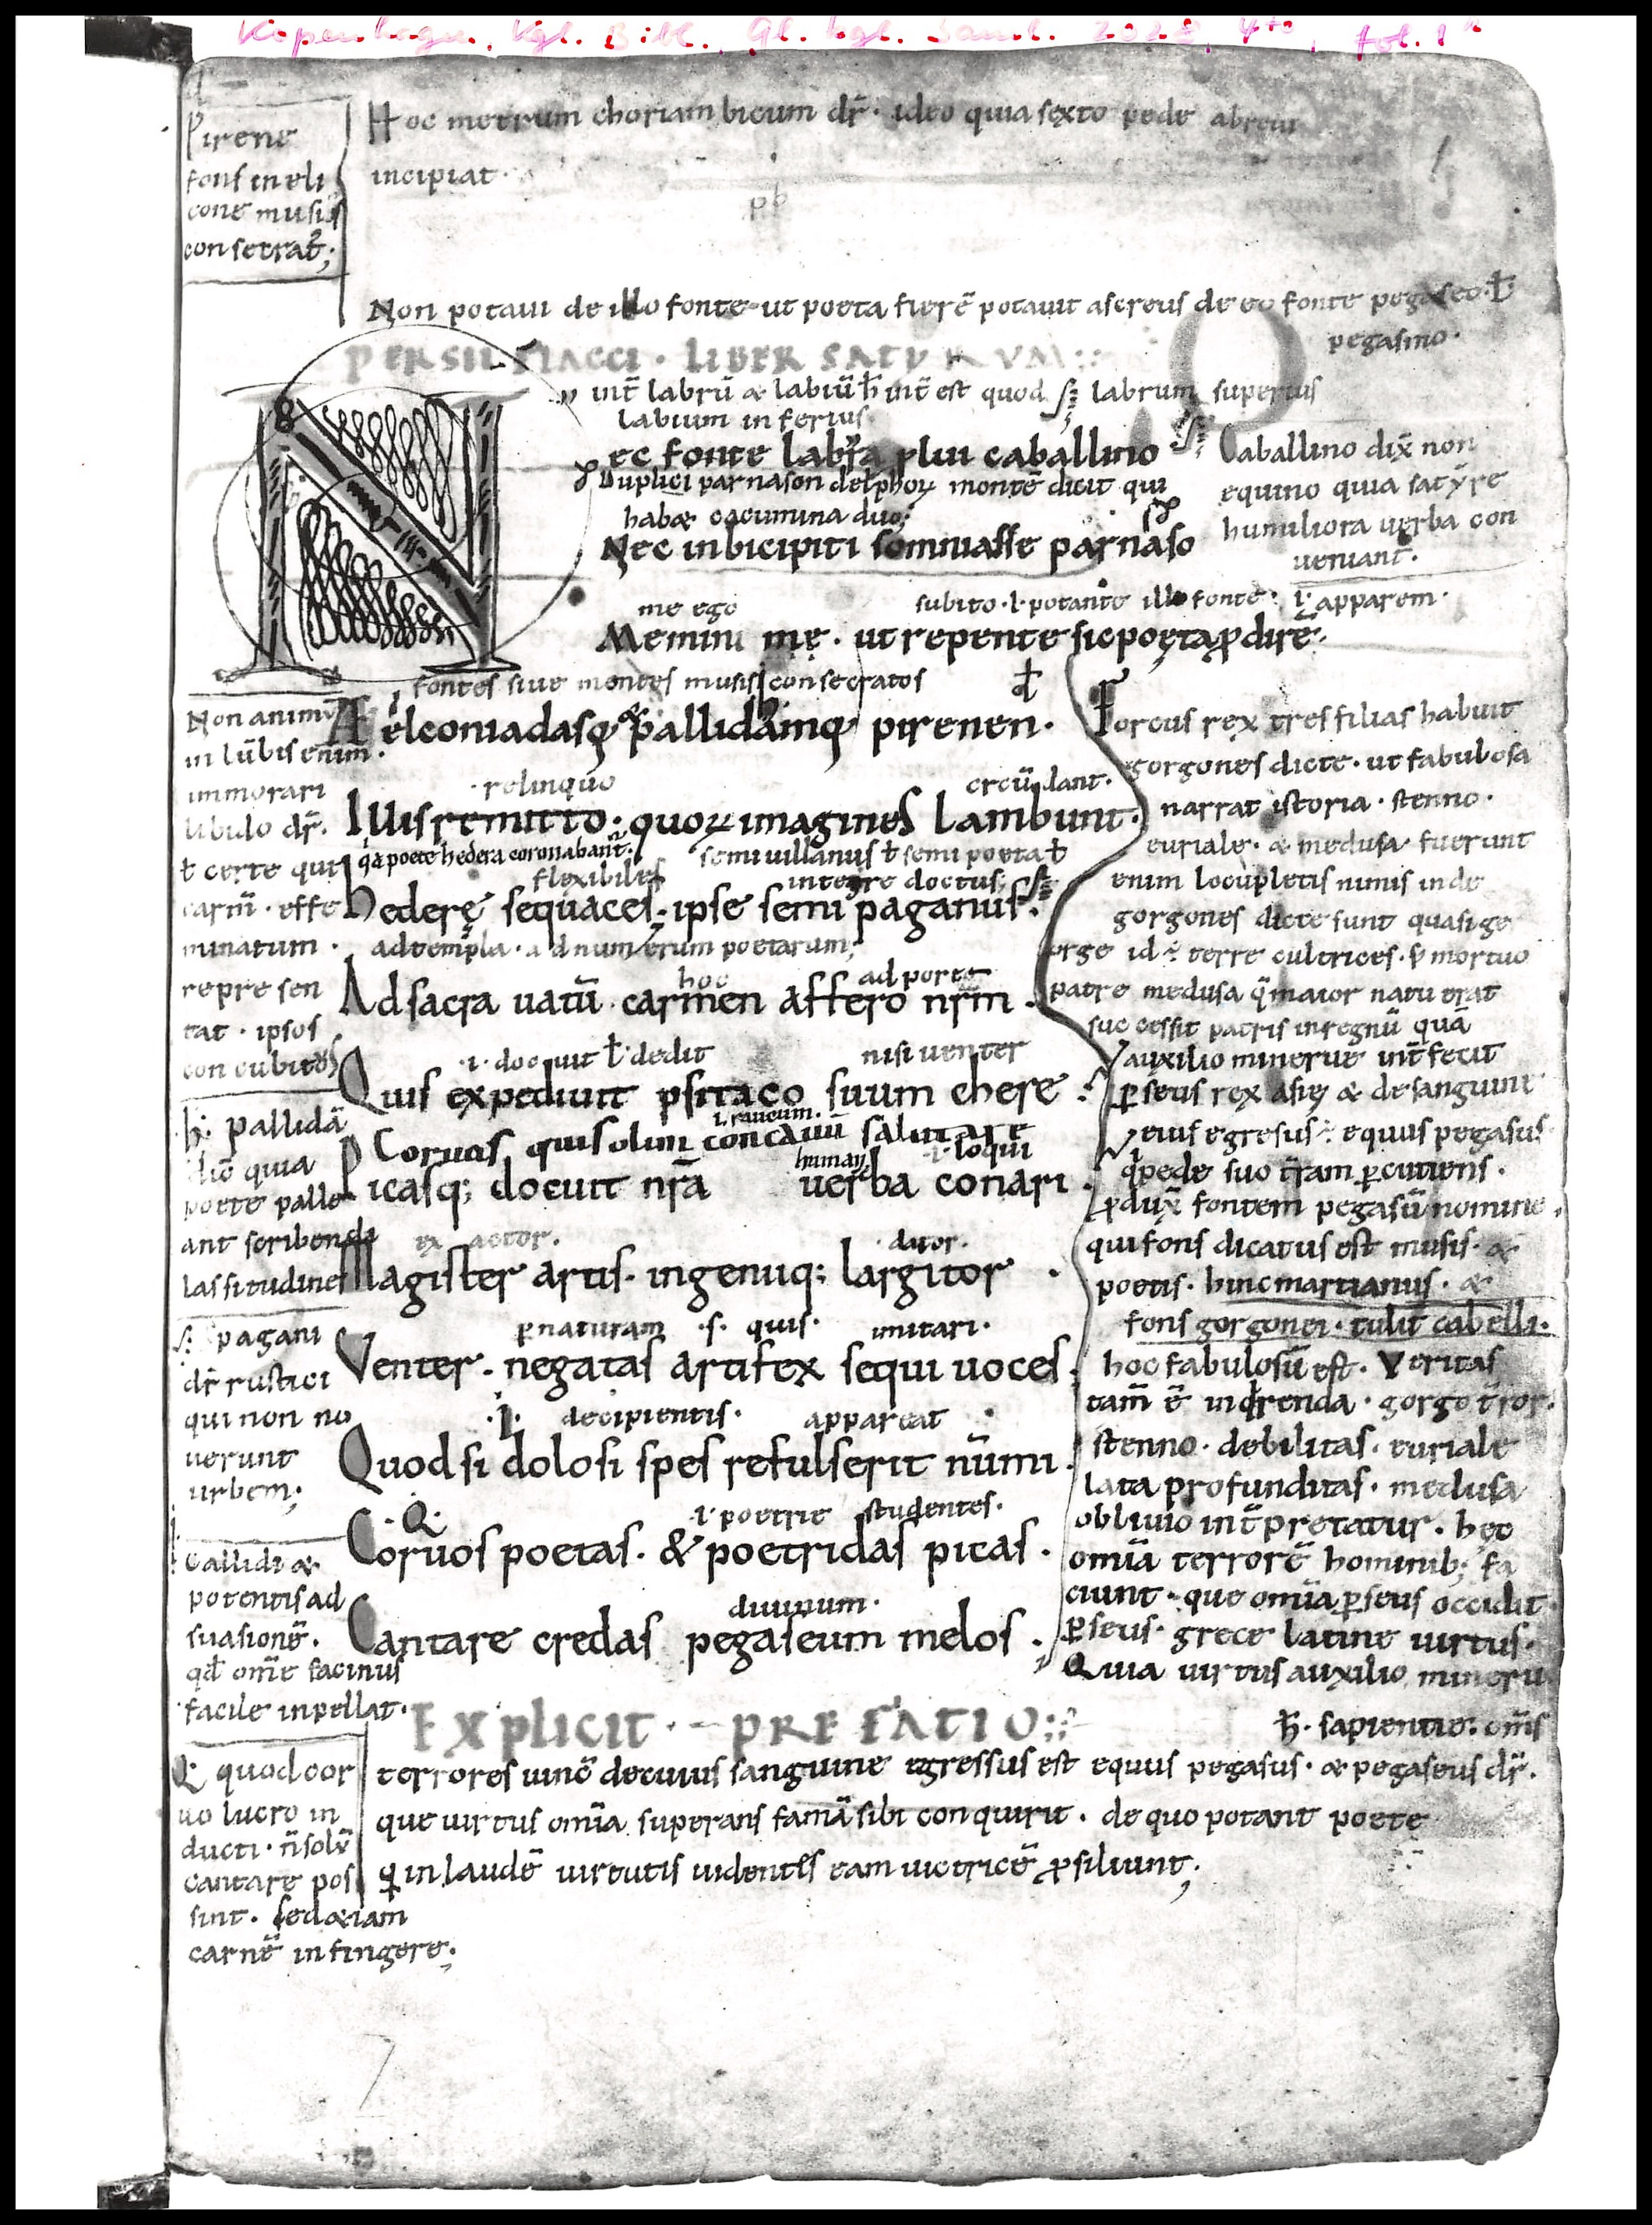 Kopenhagen, Kgl. Bibl., Gl. kgl. Saml. 2028, 4to, fol. 1r
Pirene
fons in eli
cone musis
consecrat᷑;
Hoc metrum choriambicum dr̄· ideo quia sexto pede
incipiat·
Non potaui de illo fonte· ut poeta fierē potauit ascreus de eo fonte pegaseo· ł
pegasino·
PERSII FLACCI · LIBER SATURUM::
int̄ labrū & labiū h̄ int̄ est quod labrum superius
labium inferius·
Nec fonte labra plui caballino
Caballino dix̄ non
equino quia satyre
humiliora uerba con
ueniant̄·
Duplici parnason delphoꝝ montē dicit qui
habæ cacumina duo;
Nec in bicipiti somniasse parnaso
me ego
subito· i· potante illo fonte· i· apparem·
Memini mę· ut repente sic poęta ꝓdirē·
fontes siue montes musis consecratos
Aelconiadasq; pallidamq; pirenen·
relinquo
crcūdant·
Illis remitto· quoꝝ imagines lambunt·
qa poete hedera coronabant̄·
semiuillanus ł semipoeta ł
flexibiles
integre doctus;
Hederę sequaces; ipse semipaganus·
ad templa· ad numerum poetarum;
hoc
ad porto
Ad sacra uatū· carmen affero nrm̄·
·i· docuit ł· dedit
nisi uenter
Quis expediuit psitaco suum chere·
i· raucum·
Coruos quis olim concauū salutare
humaɴ
i· loqui
Picasq; docuit nrā uerba conari·
ex actor·
dator·
Magister artis· ingeniiq; largitor·
ꝑ naturam ·s· quis· imitari·
Venter· negatas artifex sequi uoces·
·i· decipientis· appareat
Quod si dolosi spes refulserit nūmi·
·i· poetrie studentes·
Coruos poetas· & poetridas picas·
diuinum·
Cantare credas pegaseum melos·
EXPLICIT · PREFATIO::
Non
in lūbis enim·
immorari
libido dr̄·
ł certe qui
carm̄· effe
minatum·
represen
tat· ipsos
concubitos
h̄· pallidā
dic̄ quia
poete palle
ant scribendi
lassitudine
s· pagani
dr̄ rustici
qui non no
uerunt
urbem;
Callidi &
potentis ad
suasionē·
qđ om̄e facinus
facile inpellat·
quod cor
uo lucro in
ducti· n̄ solū
cantare pos
sint· sed & iam
carnē infingere;
Forcus rex tres filias habuit
gorgones dicte· ut fabulosa
narrat istoria· stenno·
euriale· & medusa· fuerunt
enim locupletis nimis inde
gorgones dicte sunt quasi ge
orge id ÷ terre cultrices· mortuo
patre medusa q̄ maior natu erat
successit patris in regnū quā
auxilio minerue int̄fecit
ꝑseus rex asię & de sanguine
eius egresus ÷ equus pegasus
q̄ pede suo t̄ram ꝑcutiens·
ꝓdux̄ fontem pegasū nomine·
qui fons dicatus est musis· &
poetis· hinc martianus· &
fons gorgonei· tulit cabelli·
hoc fabulosū est· Veritas
tam̄ ē inq̄renda· gorgo t̄ror·
stenno· debilitas· euriale
lata profunditas· medusa
obliuio int̄pretatur· hec
omīa terrorē hominib; fa
ciunt· que omīa ꝑseus occidit·
ꝑseus· grece latine uirtus·
Quia uirtus auxilio mineru
h̄· sapientie· om̄s
terrores uinc̄ de cuius sanguine egressus est equus pegasus· & pegaseus dr̄·
que uirtus omīa superans famā sibi conquirit· de quo potant poete
q̄ in laudē uirtutis uidentes eam uictricē ꝓsiliunt;